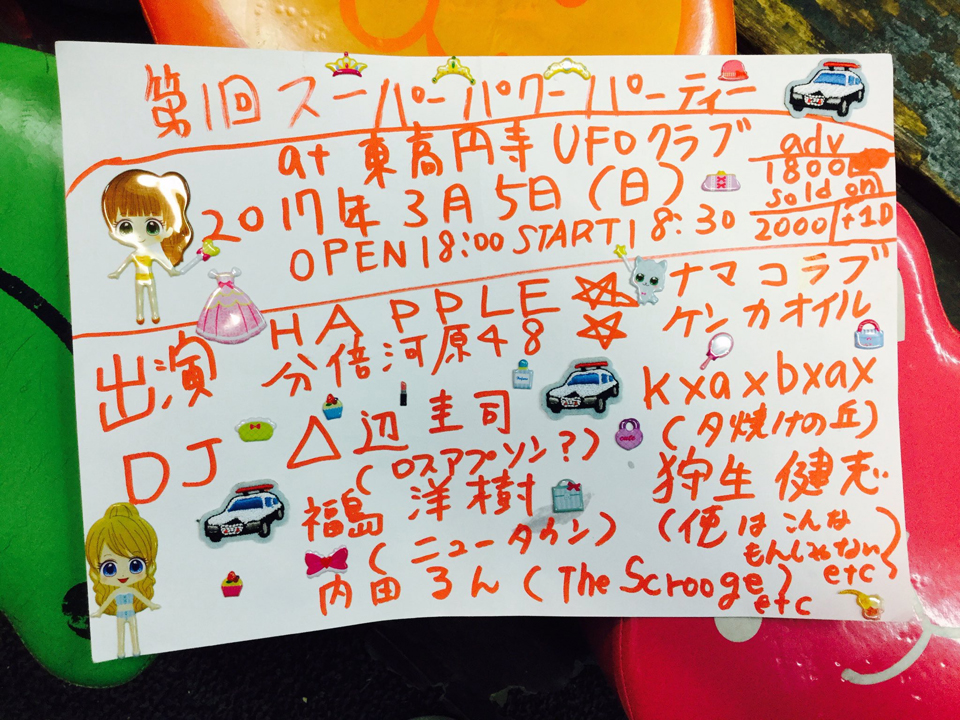 第1回スーパーパワーパーティー
at 東高円寺 UFOクラブ
2017年 3月 5日 (日)
OPEN 18:00 START 18:30
adv
1800
sold on
2000 +1D
出演
HAPPLE
分倍河原48
ナマコラブ
ケンカオイル
DJ
△辺 圭司
(ロスアプソン?)
福島 洋樹
(ニュータウン)
内田るん (The Scrooge) etc
kxaxbxax
(夕焼けの丘)
狩生 健志
(俺はこんな
もんじゃない)
etc